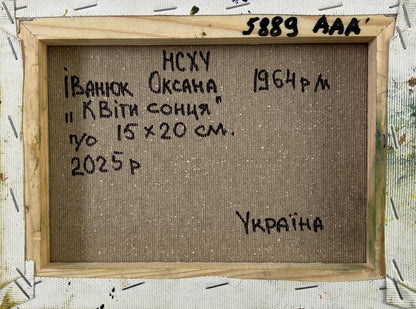 5889 ААА'
НСХУ
Іванюк Оксана 1964 р/н
„Квіти сонця"
п/о 15×20 см.
2025 р
Україна